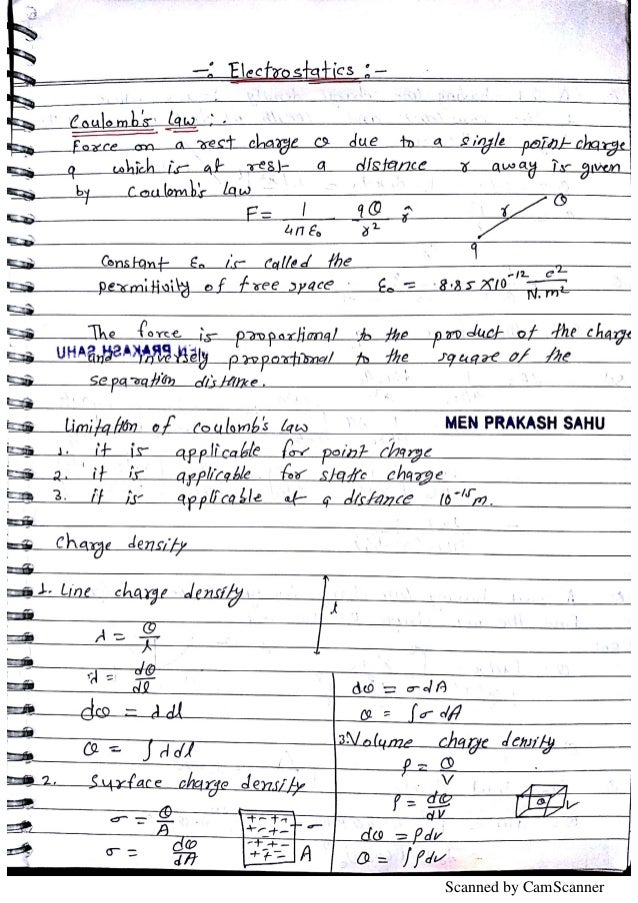 -: Electrostatics :-
Coulomb's law :.
Force on a rest charge Q due to a single point charge
q which is at rest a distance r away is given
by Coulomb's law
F = 1/4πε₀ qQ/r² r̂
r
Q
q
Constant ε₀ is called the
permittivity of free space ε₀ = 8.85 X 10⁻¹² c²/N.m²
The force is proportional to the product of the charge
and inversely proportional to the square of the
MEN PRAKASH SAHU
separation distance.
Limitation of coulomb's law
MEN PRAKASH SAHU
1. it is applicable for point charge
2. it is applicable for static charge
3. it is applicable at a distance 10⁻¹⁵m.
charge density
1. Line charge density
l
λ = Q/l
λ = dQ/dl
dQ = λdl
Q = ∫λdl
2. Surface charge density
σ = Q/A
σ = dQ/dA
A
dQ = σdA
Q = ∫σdA
3. Volume charge density
ρ = Q/V
ρ = dQ/dV
dQ = ρdv
Q = ∫ρdv
Scanned by CamScanner